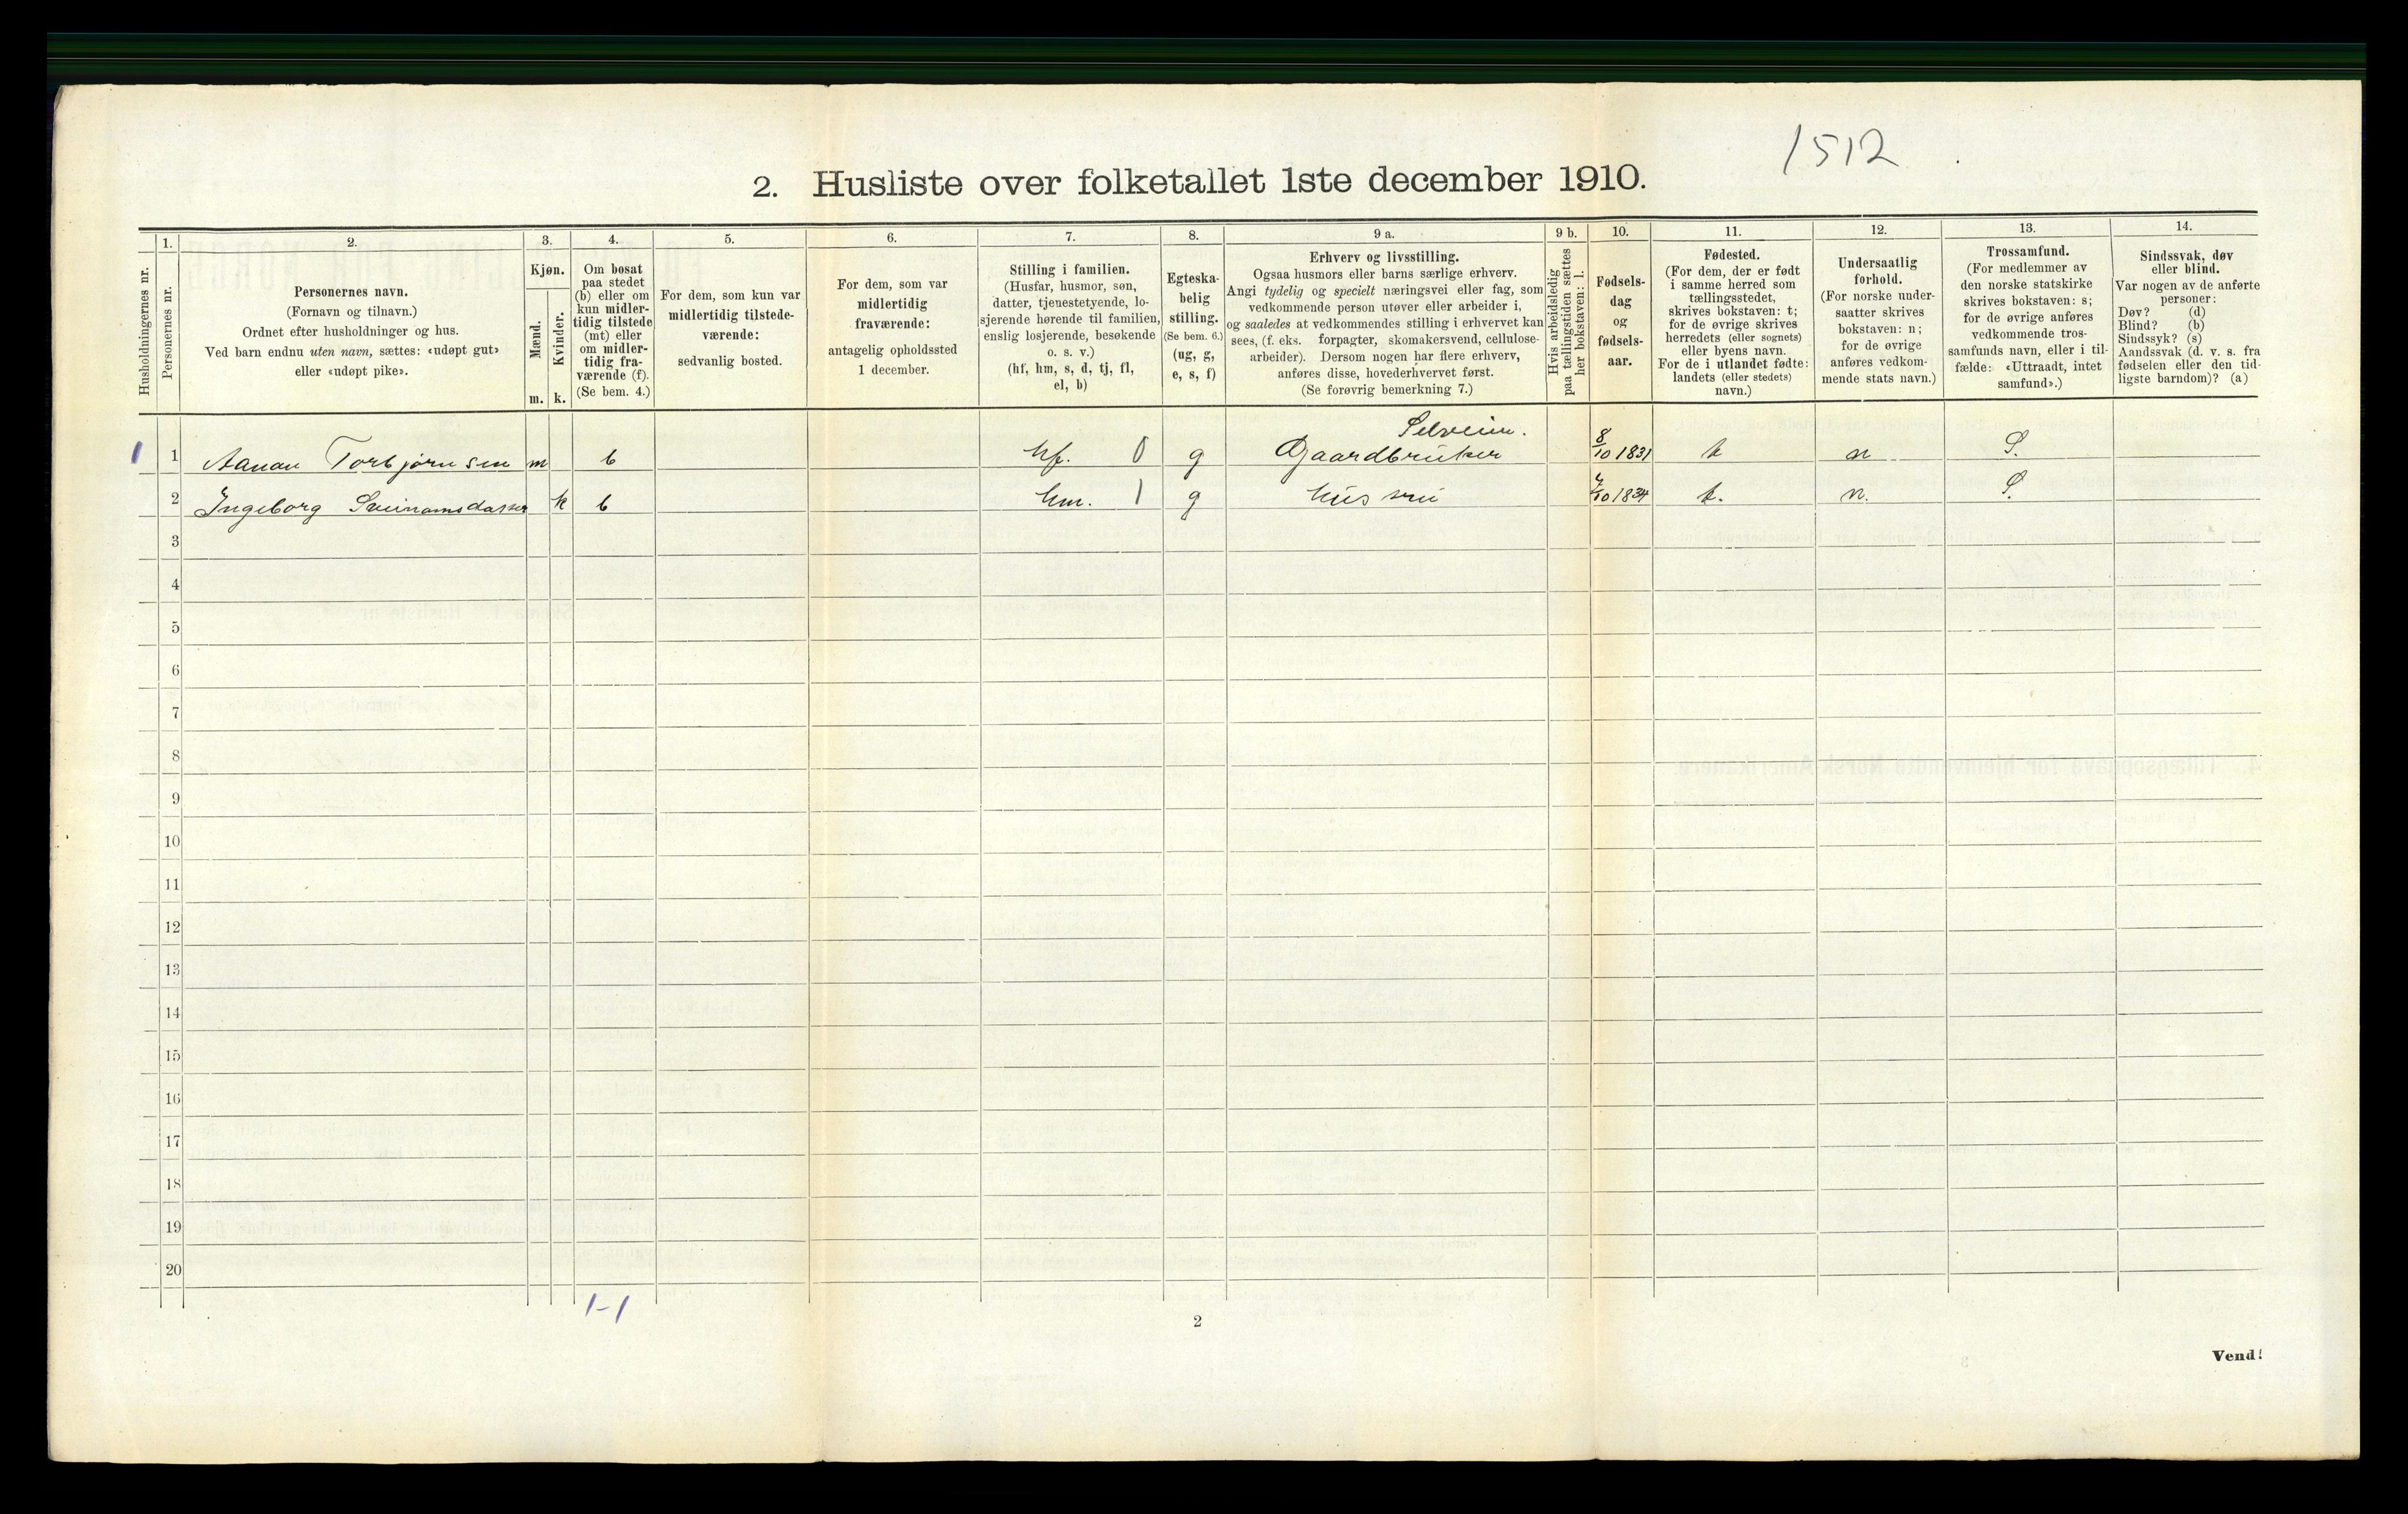 1512
2. Husliste over folketallet 1ste december 1910.
Husholdningernes nr.
1.
Personernes nr.
2.
Personernes navn.
(Fornavn og tilnavn.)
Ordnet efter husholdninger og hus.
Ved barn endnu uten navn, sættes: «udøpt gut»
eller «udøpt pike».
3.
Kjøn.
Mænd.
Kvinder.
m. k.
4.
Om bosat
paa stedet
(b) eller om
kun midler-
tidig tilstede
(mt) eller
om midler-
tidig fra-
værende (f).
(Se bem. 4.)
5.
For dem, som kun var
midlertidig tilstede-
værende:
sedvanlig bosted.
6.
For dem, som var
midlertidig
fraværende:
antagelig opholdssted
1 december.
7.
Stilling i familien.
(Husfar, husmor, søn,
datter, tjenestetyende, lo-
sjerende hørende til familien,
enslig losjerende, besøkende
o. s. v.)
(hf, hm, s, d, tj, fl,
el, b)
8.
Egteska-
belig
stilling.
(Se bem. 6.)
(ug, g,
e, s, f)
9 a.
Erhverv og livsstilling.
Ogsaa husmors eller barns særlige erhverv.
Angi tydelig og specielt næringsvei eller fag, som
vedkommende person utøver eller arbeider i,
og saaledes at vedkommendes stilling i erhvervet kan
sees, (f. eks. forpagter, skomakersvend, cellulose-
arbeider). Dersom nogen har flere erhverv,
anføres disse, hovederhvervet først.
(Se forøvrig bemerkning 7.)
9 b.
Hvis arbeidsledig
paa tællingstiden sættes
her bokstaven: l.
10.
Fødsels-
dag
og
fødsels-
aar.
11.
Fødested.
(For dem, der er født
i samme herred som
tællingsstedet,
skrives bokstaven: t;
for de øvrige skrives
herredets (eller sognets)
eller byens navn.
For de i utlandet fødte:
landets (eller stedets)
navn.)
12.
Undersaatlig
forhold.
(For norske under-
saatter skrives
bokstaven: n;
for de øvrige
anføres vedkom-
mende stats navn.)
13.
Trossamfund.
(For medlemmer av
den norske statskirke
skrives bokstaven: s;
for de øvrige anføres
vedkommende tros-
samfunds navn, eller i til-
fælde: «Uttraadt, intet
samfund».)
14.
Sindssvak, døv
eller blind.
Var nogen av de anførte
personer:
Døv? (d)
Blind? (b)
Sindssyk? (s)
Aandssvak (d. v. s. fra
fødselen eller den tid-
ligste barndom)? (a)
Selveier.
1 1 Aanan Torbjørnsen m b hf. 0 g Gaardbruker 8/10 1831 t n S.
2 Ingeborg k b hm. 1 g Hustru 1834 t. n. S.
3
4
5
6
7
8
9
10
11
12
13
14
15
16
17
18
19
20
1-1
2
Vend!